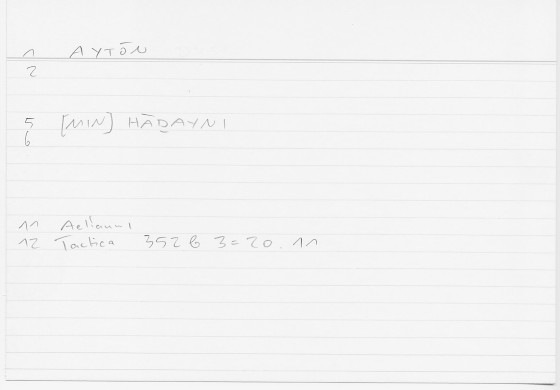 1 AYTŌN
2
5 [MIN] HĀḎAYNI
6
11 Aeliani
12 Tactica 352 B 3 = 20. 11